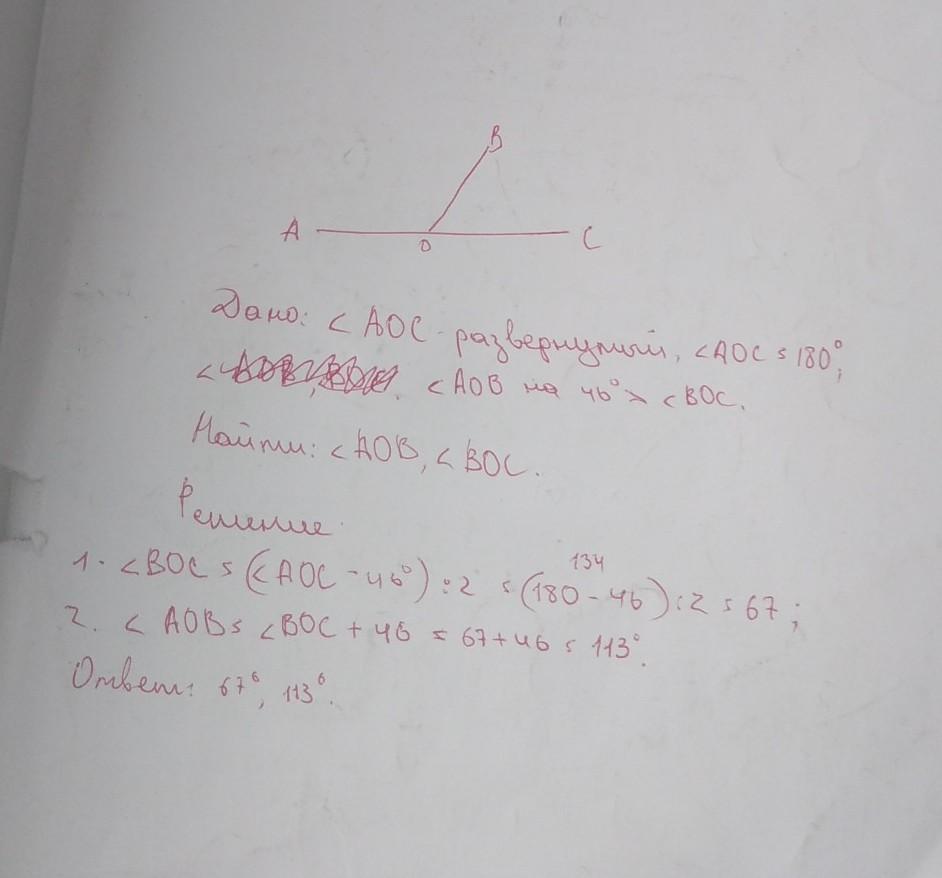 B
A O C
Дано: ∠AOC - развернутый, ∠AOC = 180°,
∠AOB на 46° > ∠BOC.
Найти: ∠AOB, ∠BOC.
Решение.
134
1. ∠BOC = (∠AOC - 46°) : 2 = (180 - 46) : 2 = 67;
2. ∠AOB = ∠BOC + 46 = 67 + 46 = 113°.
Ответ: 67°, 113°.